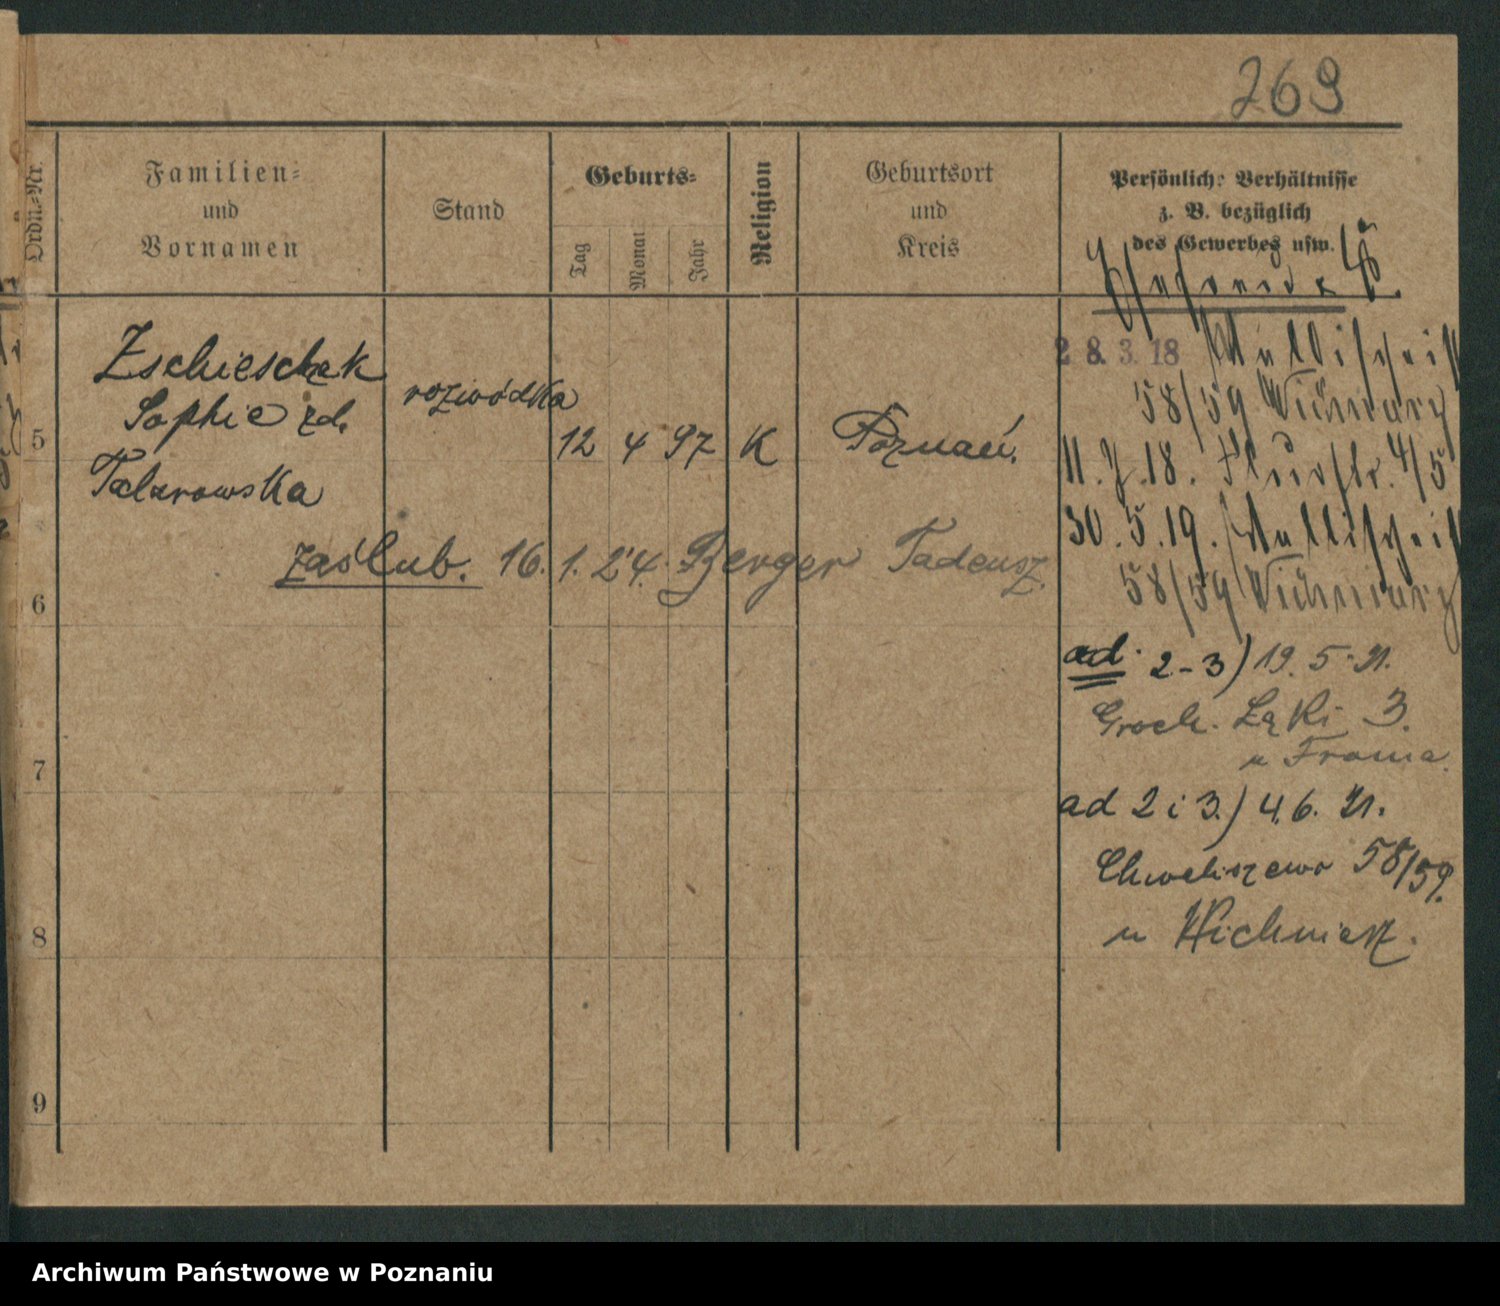 269
Ordn.-Nr.
Familien-
und
Vornamen
Stand
Geburts-
Tag
Monat
Jahr
Religion
Geburtsort
und
Kreis
Persönlich: Verhältnisse
z. B. bezüglich
des Gewerbes usw.
5
Zschieschek
Sophie zd.
Talarowska
rozwódka
12 4 97 K Poznań.
zaślub. 16.1.24. Berger Tadeusz.
6
7
8
9
28.3.18 Wallischei
58/59
11. 7. 18. Flurstr. 4/5
30. 5. 19. Wallischei
58/59
ad. 2-3) 19. 5. 21.
Groch. Łąki 3.
u
ad 2 i 3.) 4.6. 21.
Chwaliszewo 58/59.
u
Archiwum Państwowe w Poznaniu